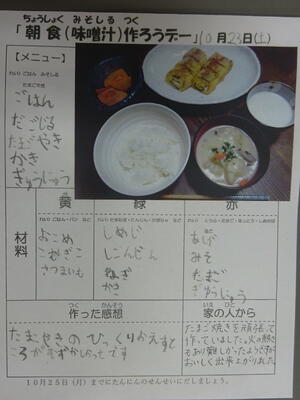 ちょうしょく みそしる つく
「朝食(味噌汁)作ろうデー」10月23日(土)
【メニュー】
れい）ごはん みそしる
たまごやき
ごはん
だごじる
たまごやき
かき
ぎゅうにゅう
黄
緑
赤
材料
よこめ
こむぎこ
さつまいも
しめじ
しにんじん
ねぎ
かき
あげ
みそ
たまご
ぎゅうにゅう
つく かんそう
作った感想
いえ ひと
家の人から
たまごやきのひっくりかえすと
ころがむずかしかったです
たまご焼きを頑張って
作っていました。火の熱さ
もあり難しかったようですが
おいしく出来上がりました。
10月25日(月)までにたんにんのせんせいにだしましょう。